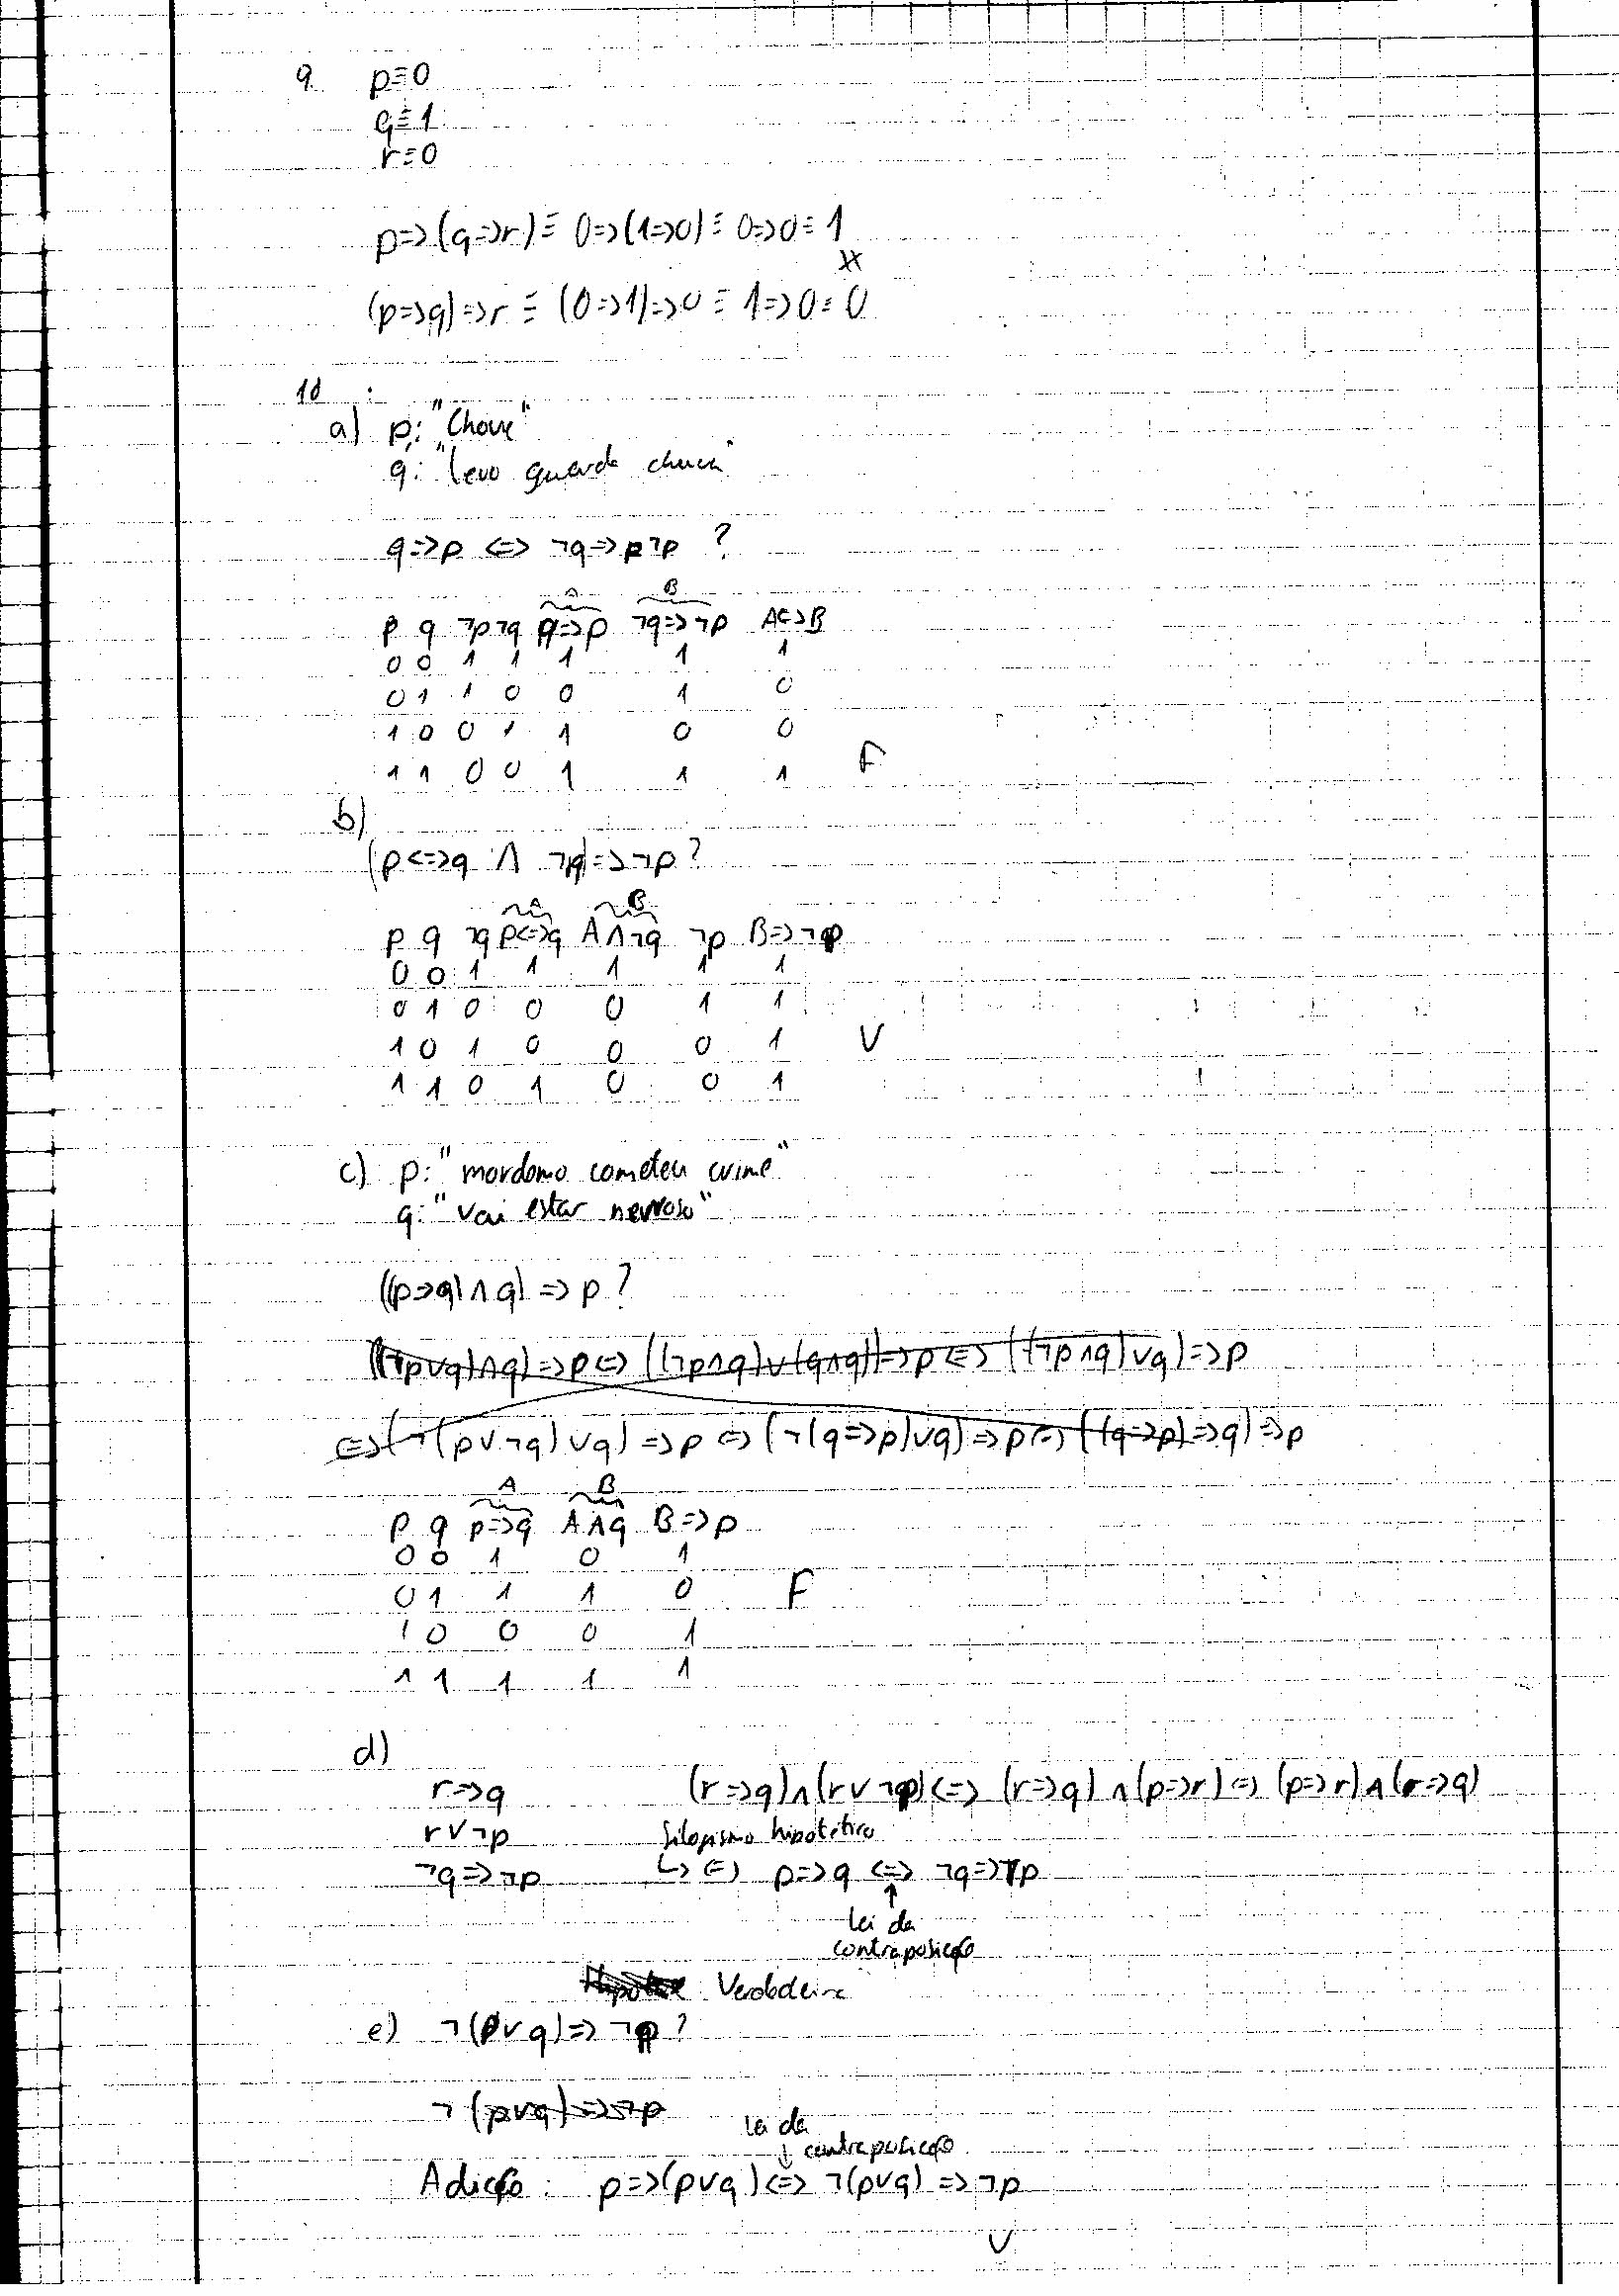 9. p≡0
q≡1
r≡0
p=>(q=>r) ≡ 0=>(1=>0) ≡ 0=>0 ≡ 1
(p=>q)=>r ≡ (0=>1)=>0 ≡ 1=>0 ≡ 0
10
a) p: "Chove"
q: "levo guarda chuva"
q=>p <=> ¬q=>¬p ?
A B
p q ¬p ¬q q=>p ¬q=>¬p A<=>B
0 0 1 1 1 1 1
0 1 1 0 0 1 0
1 0 0 1 1 0 0
1 1 0 0 1 1 1 F
b)
(p<=>q ∧ ¬q)=>¬p?
A B
p q ¬q p<=>q A∧¬q ¬p B=>¬p
0 0 1 1 1 1 1
0 1 0 0 0 1 1
1 0 1 0 0 0 1 V
1 1 0 1 0 0 1
c) p: "mordomo cometeu crime"
q: "vai estar nervoso"
((p=>q)∧q) => p?
((¬p∨q)∧q)=>p <=> ((¬p∧q)∨(q∧q))=>p <=> ((¬p∧q)∨q)=>p
<=>(¬(p∨¬q)∨q)=>p <=> (¬(q=>p)∨q)=>p <=> ((q=>p)=>q)=>p
A B
p q p=>q A∧q B=>p
0 0 1 0 1
0 1 1 1 0 F
1 0 0 0 1
1 1 1 1 1
d)
r=>q (r=>q)∧(r∨¬p)<=> (r=>q)∧(p=>r)<=> (p=>r)∧(r=>q)
r∨¬p Silogismo hipotético
¬q=>¬p ↳ <=> p=>q <=> ¬q=>¬p
↑
lei da
contraposição
Verdadeira
e) ¬(p∨q)=>¬p?
¬(p∨q)=>¬p
lei da
↓ contraposição
Adição: p=>(p∨q)<=> ¬(p∨q)=>¬p
V